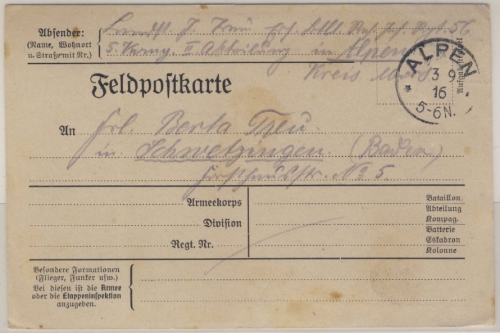 Absender:
(Name, Wohnort
u. Straße mit Nr.)
5. Komp. II Abteilung in Alpen
Kreis Mörs
ALPEN
3 9
16
5-6N.
Feldpostkarte
An
Frl. Berta Treu
in Schwetzingen (Baden)
No 5.
Armeekorps
Division
Regt. Nr.
Bataillon
Abteilung
Kompag.
Batterie
Eskadron
Kolonne
Besondere Formationen
(Flieger, Funker usw.)
Bei diesen ist die Armee
oder die Etappeninspektion
anzugeben.